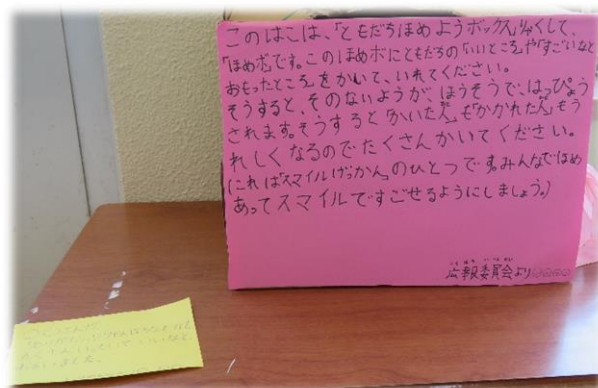 このはこは、「ともだちほめようボックス」りゃくして、
「ほめボ」です。このほめボにともだちの「いいところ」や「すごいなと
おもったところ」をかいて、いれてください。
そうすると、そのないようが、ほうそうで、はっぴょう
されます。そうすると「かいた人」も「かかれた人」もう
れしくなるのでたくさんかいてください。
(これは「スマイルげっかん」のひとつです。みんなでほめ
あってスマイルですごせるようにしましょう。)
広報委員会より